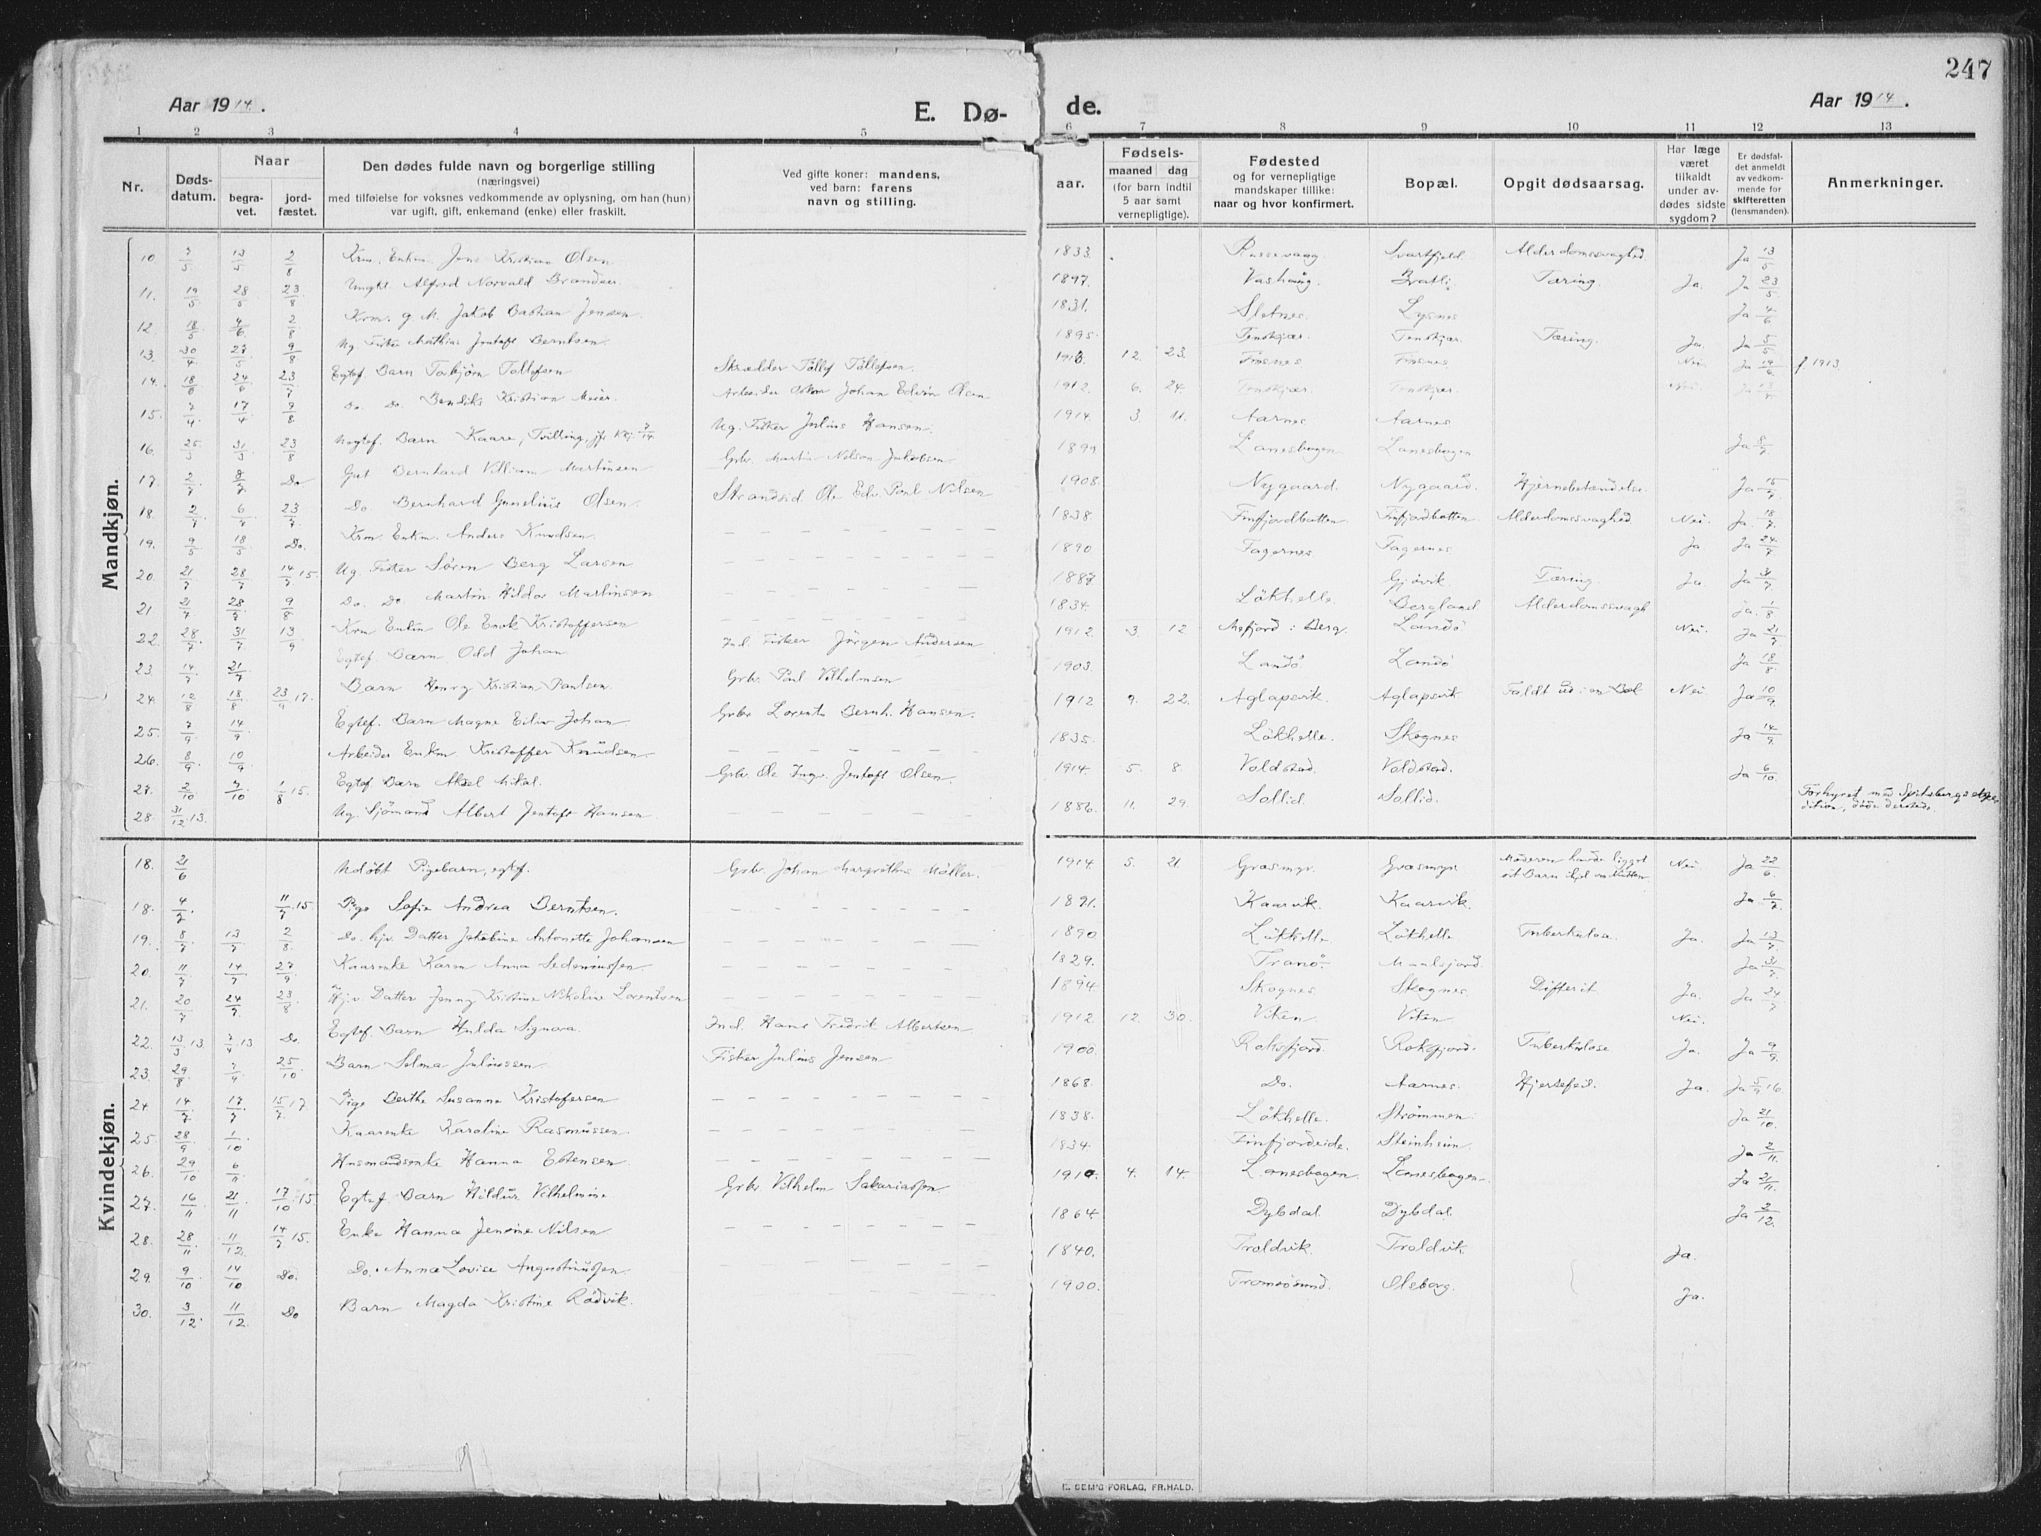 247
Aar 1914.
E. Dø-
de.
Aar 1914.
1 2 3 4 5 6 7 8 9 10 11 12 13
Nr.
Døds-
datum.
Naar
begra-
vet.
jord-
fæstet.
Den dødes fulde navn og borgerlige stilling
(næringsvei)
med tilføielse for voksnes vedkommende av oplysning, om han (hun)
var ugift, gift, enkemand (enke) eller fraskilt.
Ved gifte koner: mandens,
ved barn: farens
navn og stilling.
aar.
Fødsels-
maaned dag
(for barn indtil
5 aar samt
vernepligtige).
Fødested
og for vernepligtige
mandskaper tillike:
naar og hvor konfirmert.
Bopæl.
Opgit dødsaarsag.
Har læge
været
tilkaldt
under av-
dødes sidste
sygdom?
Er dødsfal-
det anmeldt
av vedkom-
mende for
skifteretten
(lensmanden).
Anmerkninger.
Mandkjøn.
10 7/5 13/5 2/8 Krm. Enkm. Jens Kristian Olsen 1833. Russevaag Svartfjeld Alderdomssvaghed Ja 13/5
11. 19/5 28/5 23/8 Ungkl Alfred Norvald 1897. Vashaug Bratli Tæring. Ja. Ja 23/5
12. 18/5 4/6 2/8 Krm. g. M. Jakob Bastian Jensen. 1831. Sletnes Lysnes Ja 4/6
13. 30/4 27/5 9/8 Ug Fisker Mathias Jentoft Berntsen. 1895. Tenskjær. Tenskjær. Tæring. Ja. Ja 5/5
14. 18/6 24/6 23/7 Egtef Barn Torbjørn Tollefsen Skrædder Tollef Tollefsen. 12. 23. Finsnes Finsnes Nei Ja 19/6 f. 1913.
15. 7/4 17/4 9/8 Do. Do. Bendiks Kristian Meier. Arbeider Oskar Johan Edvin Olsen 1912. 6. 24. Tenskjær. Tenskjær Nei.
16. 25/3 31/3 23/8 Uegtef. Barn Kaare, Tvilling, Ug. Fisker Julius Hansen. 1914 3. 11. Aarnes Aarnes
17. 2/7 8/7 Do Gut Bernhard Villiam Martinsen Grb. Martin Nelson Jakobsen 1899 Lanesbogen Lanesbogen Ja 8/7
18. 2/7 6/7 23/7 Do. Bernhard Gunelius Olsen Strandsid Ole Edv. Paul Nilsen 1908. Nygaard. Nygaard. Hjernebetændelse. Ja 15/7
19. 9/5 18/5 Do. Krm Enkm. Anders Knudsen. 1838. Finfjordbotten Finfjordbotten Alderdomssvaghed. Nei. Ja. 18/7
20. 21/7 28/7 14/7 15. Ug. Fisker Søren Berg Larsen 1890 Fagernes Fagernes Ja Ja 24/7
21 21/7 28/7 9/8 Do. Do. Martin Hildor Martinsen 1887 Gjøvik Tæring. Ja. Ja 31/7
22. 28/7 31/7 13/9 Krm Enkm Ole Enok Kristoffersen 1834. Løkhelle. Bergland Alderdomssvagh Ja.
23. 14/7 21/7 Egtef. Barn Odd Johan. Ind. Fisker Jørgen Andersen 1912. 3. 12 Mefjord i Berg. Landø Nei. Ja 21/7
24. 12/8 18/8 17. Barn Henry Kristian Paulsen. Grb. Paul Vilhelmsen 1903. Landø Landø Ja 18/8
25. 7/9 14/9 Egtef. Barn Magne Johan Grbr Lorents Bernh. Hansen. 1912 9. 22. Aglapsvik Aglapsvik Faldt ud i en Nei Ja 10/9
26. 8/9 10/9 Arbeider Enkm Kristoffer Knudsen. 1835. Løkhelle. Skognes Ja 14/9
27. 2/10 7/10 1/8 15. Egtef Barn Aksel Mikal. Grb. Ole Ing. Jentoft Olsen 1914. 5. 8. Voldstad. Voldstad. Ja 6/10
28. 31/12 13. Ug. Sjømand Albert Jentoft Hansen 1886. 11. 29. Sollid. Sollid. Forhyret med Spitsbergs expe-
dition, døde dersteds.
Kvindekjøn.
18. 21/6 Udøbt Pigebarn, egtef. Grb. Johan Margrethus Møller. 1914. 5. 21 Græsmyr. Græsmyr. Moderen havde ligget Nei Ja 22/6
18. 4/7. 11/7 15 Pige Sofie Andrea Berntsen. 1891. Kaarvik. Kaarvik. Ja 6/7
19. 8/7 13/7 2/8. Do. hjv. Datter Jakobine Antonette Johansen 1890 Løkhelle Løkhelle Tuberkulose Ja. Ja 13/7
20. 11/7 14/7 27/9 Kaarenke Karen Anna 1829. Tranø Maalsfjord Ja 31/7
21. 20/7 24/7 23/8 Hjv. Datter Jenny Kristine Nikoline Lorentsen 1894 Skognes Skognes Difterit Ja. Ja 24/7
22. 13/3 13. 7/4 13 Do. Egtef. Barn Hulda Signora. Ind. Hans Fredrik Albertsen 1912 12. 30. Viken Viken Nei.
23. 29/8 7/9 25/10 Barn Selma Juliussen. Fisker Julius Jensen 1900. Roksfjord. Roksfjord. Tuberkulose Ja. Ja 9/9
24 14/7 17/7 15/7 17 Pige Berthe Susanna Kristofersen 1868. Do. Aarnes. Hjertefeil. Ja. Ja 5/9 16.
25. 28/9 1/10 Kaarenke Karoline Rasmussen 1838. Løkhelle. Strømmen Ja 21/10
26. 29/10 6/11 Husmandsenke Hanna Ebtensen 1834. Finfjordeide. Steinheim Ja 2/11.
27. 16/11 21/11 17/10 15 Egtef. Barn Hildur Vilhelmine Grbr Vilhelm Sakariassen. 1910. 4. 14. Lanesbogen. Lanesbogen. Ja 21/11.
28. 28/11 11/12 14/7 15. Enke Hanna Jensine Nilsen 1864. Dybdal. Dybdal Ja 2/12.
29. 9/10 14/10 Do. Do. Anna Lovise Augustinussen. 1840. Troldvik. Troldvik Ja.
30. 3/12 11/12 Do Barn Magda Kristine Rødvik. 1900. Tromsøsund. Olsborg. Ja.
E. SEM'S FORLAG, FR.HALD.